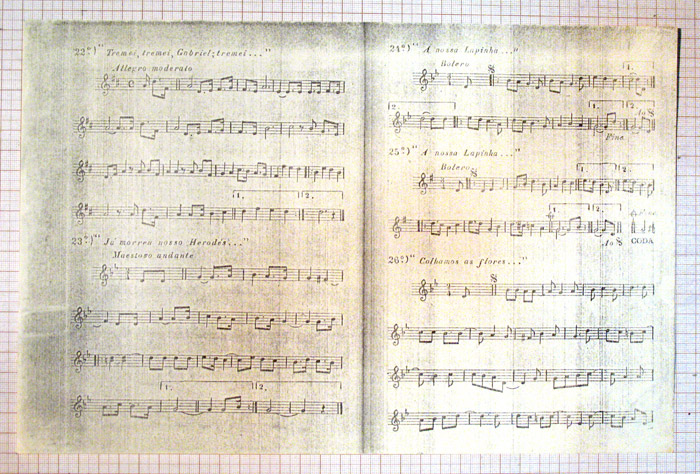 22º)" Tremei, tremei, Gabriel; tremei..."
Allegro moderato
1.
2.
23º)" Já morreu nosso Herodes..."
Maestoso andante
1.
2.
24º)" A nossa Lapinha..."
Bolero
1.
2.
1.
2.
Fine
25º)" A nossa Lapinha..."
Bolero
1.
2.
1.
2.
CODA
26º)" Colhamos as flores..."